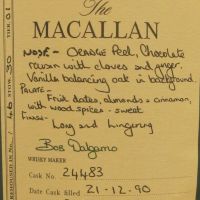 The
MACALLAN
NOSE - ORANGE Peel, Chocolate
raisin with cloves and ginger.
Vanilla balancing oak in background.
PALATE -
Fruit dates, almonds & cinnamon,
with wood spices - sweet
FINISH -
Long and Lingering
Bob Dalgarno
WHISKY MAKER
Cask No. 24483
Date Cask filled 21-12-90